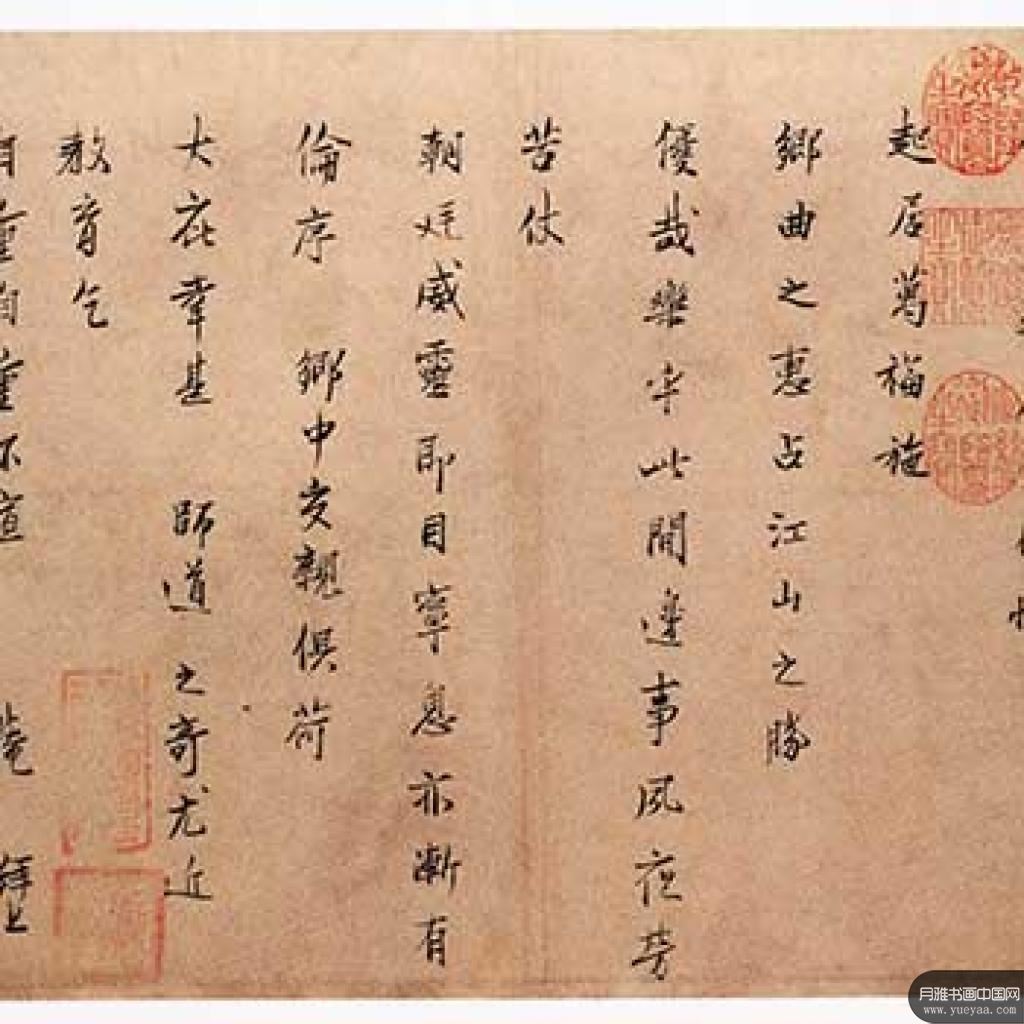 起居萬福施
鄉曲之惠占江山之勝
優哉樂乎此間邊事夙夜勞
苦仗
朝廷威靈即目寧息亦漸有
倫序 鄉中交親俱荷
大庇幸甚 師道之奇尤近
教育乞
自重自重不宣 淹 拜上
月雅书画中国网
www.yueyaa.com